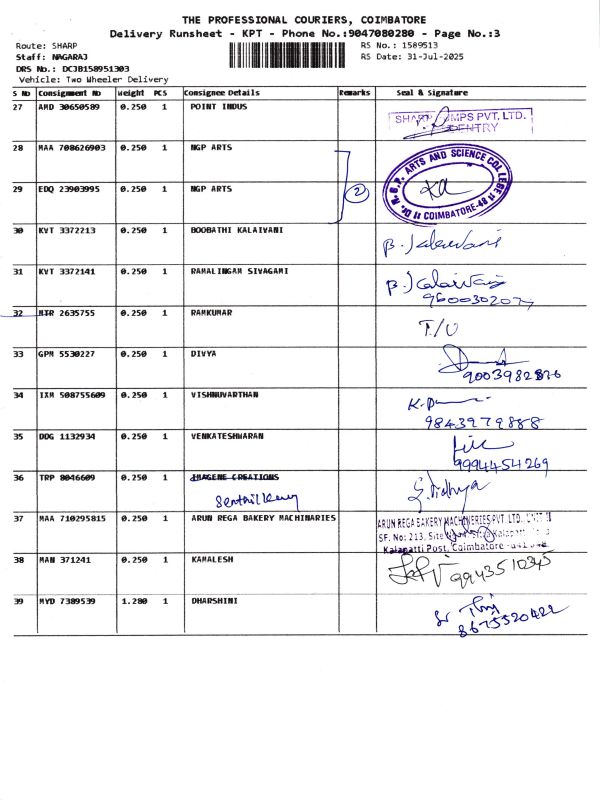 THE PROFESSIONAL COURIERS, COIMBATORE
Delivery Runsheet - KPT - Phone No.:9047080280 - Page No.:3
Route: SHARP RS No.: 1589513
Staff: NAGARAJ RS Date: 31-Jul-2025
DRS No.: DCJB158951303
Vehicle: Two Wheeler Delivery
S No Consignment No Weight PCS Consignee Details Remarks Seal & Signature
27 AMD 30650589 0.250 1 POINT INDUS
SHARP PUMPS PVT. LTD.
ENTRY
28 MAA 708626903 0.250 1 NGP ARTS
Dr. N.G.P. ARTS AND SCIENCE COLLEGE
COIMBATORE-48
29 EDQ 23903995 0.250 1 NGP ARTS 2
30 KVT 3372213 0.250 1 BOOBATHI KALAIVANI B. Kalaivani
31 KVT 3372141 0.250 1 RAMALINGAM SIVAGAMI B. Kalaivani
32 MTR 2635755 0.250 1 RAMKUMAR T/U
33 GPM 5530227 0.250 1 DIVYA
34 IXM 508755609 0.250 1 VISHNUVARTHAN
9843979888
35 DDG 1132934 0.250 1 VENKATESHWARAN
9994454269
36 TRP 8046609 0.250 1 IMAGENE CREATIONS S. Vidhya
37 MAA 710295815 0.250 1 ARUN REGA BAKERY MACHINARIES
ARUN REGA BAKERY MACHINERIES PVT. LTD.,
SF. No: 213, Site
Kalapatti Post, Coimbatore
38 MAN 371241 0.250 1 KAMALESH 9943510345
39 MYD 7389539 1.280 1 DHARSHINI
8675520422